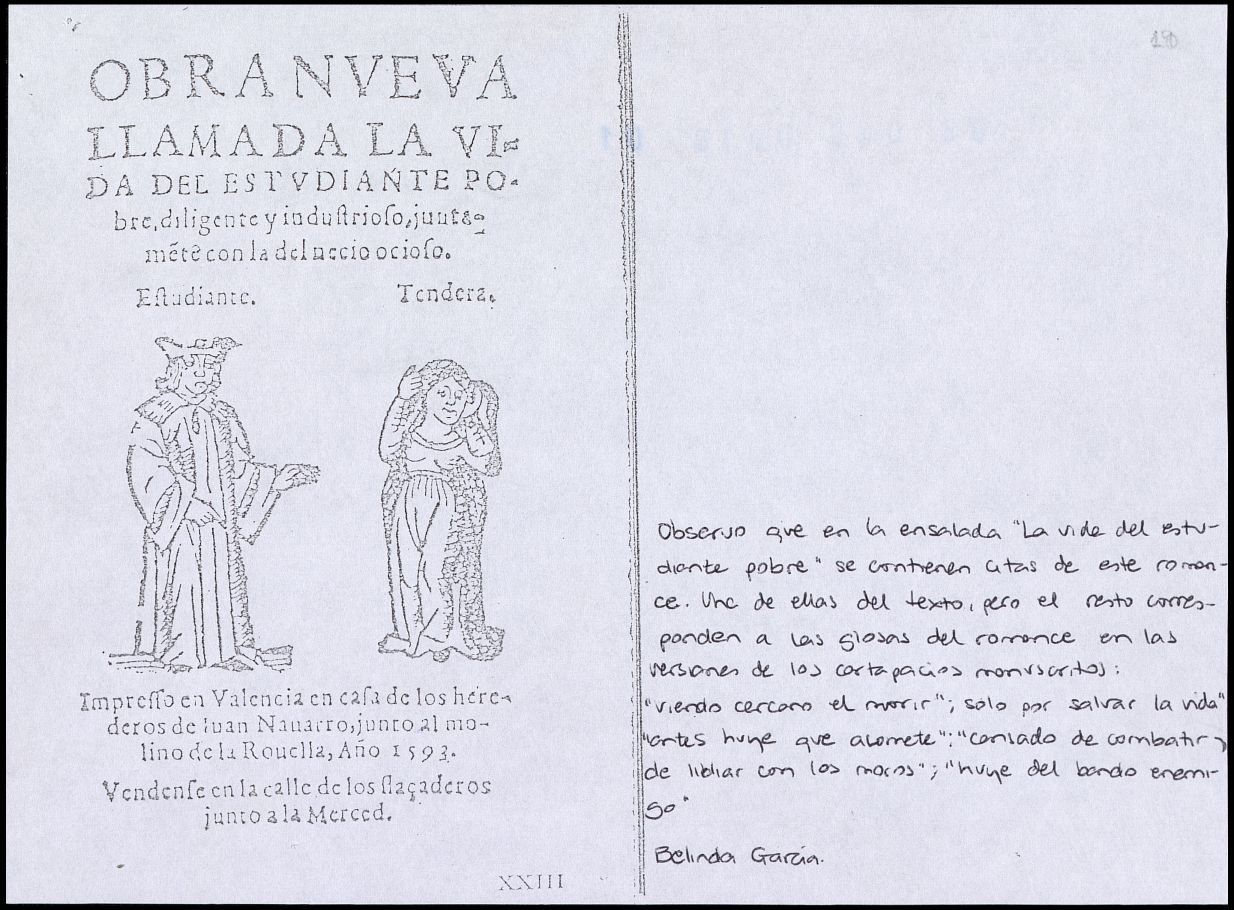 OBRA NVEVA
LLAMADA LA VI-
DA DEL ESTVDIANTE PO-
bre, diligente y industrioſo, junta-
mẽtẽ con la del necio ocioſo.
Eſtudiante.
Tendera.
Impreſſo en Valencia en caſa de los here-
deros de Iuan Nauarro, junto al mo-
lino de la Rouella, Año 1593.
Vendenſe en la calle de los flaçaderos
junto a la Merced.
XXIII
Observo que en la ensalada "La vida del estu-
diante pobre" se contienen citas de este roman-
ce. Una de ellas del texto, pero el resto corres-
ponden a las glosas del romance en las
versiones de los cartapacios manuscritos:
"viendo cercano el morir"; solo por salvar la vida"
"antes huye que acomete"; "cansado de combatir y
de lidiar con los moros"; "huye del bando enemi-
go"
Belinda García.